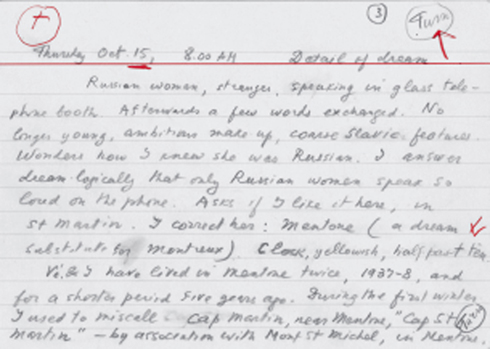 + 3 Turn
Thursday Oct. 15, 8.00 AM Detail of dream
Russian woman, stranger, speaking in glass tele-
phone booth. Afterwards a few words exchanged. No
longer young, ambitious make up, coarse Slavic features.
Wonders how I knew she was Russian. I answer
dream-logically that only Russian women speak so
loud on the phone. Asks if I like it here, in
St Martin. I correct her: Mentone (a dream
substitute for Montreux). Clock, yellowish, half past ten.
Vé & I have lived in Mentone twice, 1937-8, and
for a shorter period five years ago. During the first winter
I used to miscall Cap Martin, near Mentone, "Cap St
Martin" – by association with Mont St Michel, in Mentone.
Turn